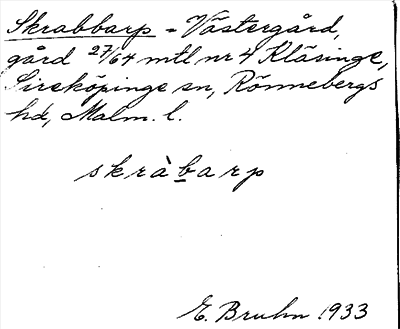 Skrabbarp = Västergård,
gård 27/64 mtl nr 4 Kläsinge,
Sireköpinge sn, Rönnebergs
hd, Malm. l.
skràbarp
E. Bruhn 1933